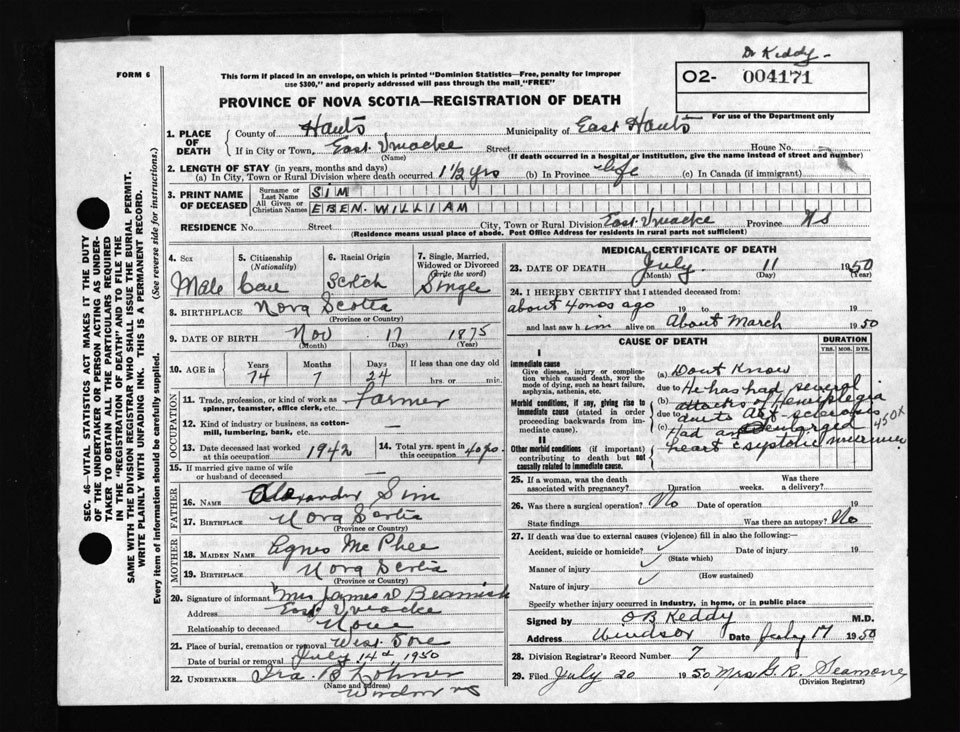 Dr Keddy-
FORM 6
This form if placed in an envelope, on which is printed "Dominion Statistics—Free, penalty for improper
use $300," and properly addressed will pass through the mail "FREE"
02- 004171
For use of the Department only
PROVINCE OF NOVA SCOTIA—REGISTRATION OF DEATH
1. PLACE OF DEATH
County of Hants Municipality of East Hants
If in City or Town, East Uniacke Street House No.
(Name) (If death occurred in a hospital or institution, give the name instead of street and number)
2. LENGTH OF STAY (in years, months and days)
(a) In City, Town or Rural Division where death occurred 1 1/2 yrs (b) In Province life (c) In Canada (if immigrant)
3. PRINT NAME OF DECEASED
Surname or Last Name SIM
All Given or Christian Names EBEN. WILLIAM
RESIDENCE No. Street City, Town or Rural Division East Uniacke Province NS
(Residence means usual place of abode. Post Office Address for residents in rural parts not sufficient)
4. Sex Male
5. Citizenship (Nationality) Can
6. Racial Origin Scotch
7. Single, Married, Widowed or Divorced (Write the word) Single
8. BIRTHPLACE Nova Scotia
(Province or Country)
9. DATE OF BIRTH Nov 17 1875
(Month) (Day) (Year)
10. AGE in Years Months Days If less than one day old
74 7 24 hrs. or min.
OCCUPATION
11. Trade, profession, or kind of work as spinner, teamster, office clerk, etc. Farmer
12. Kind of industry or business, as cotton-mill, lumbering, bank, etc. —
13. Date deceased last worked at this occupation 1942
14. Total yrs. spent in this occupation 40 yrs.
15. If married give name of wife or husband of deceased —
FATHER
16. NAME Alexander Sim
17. BIRTHPLACE Nova Scotia
(Province or Country)
MOTHER
18. MAIDEN NAME Agnes McPhee
19. BIRTHPLACE Nova Scotia
(Province or Country)
20. Signature of informant Mrs James D Beamish
Address East Uniacke
Relationship to deceased None
21. Place of burial, cremation or removal West Gore
Date of burial or removal July 14th 1950
22. UNDERTAKER Ira B Lohnes
(Name and address) Windsor NS
MEDICAL CERTIFICATE OF DEATH
23. DATE OF DEATH July 11 1950
(Month) (Day) (Year)
24. I HEREBY CERTIFY that I attended deceased from:
about 4 mos ago 19 to 19
and last saw him alive on About March 1950
CAUSE OF DEATH
DURATION
YRS. MOS. DYS.
I
Immediate cause
Give disease, injury or complication which caused death, not the mode of dying, such as heart failure, asphyxia, asthenia, etc.
(a) Dont Know
due to He has had several
Morbid conditions, if any, giving rise to immediate cause (stated in order proceeding backwards from immediate cause).
(b) attacks of Hemiplegia
due to Art-sclerosis
(c) Had an Enlarged
450X
II
Other morbid conditions (if important) contributing to death but not causally related to immediate cause.
heart c systolic murmur
25. If a woman, was the death associated with pregnancy? Duration weeks. Was there a delivery?
26. Was there a surgical operation? No Date of operation 19
State findings Was there an autopsy? No
27. If death was due to external causes (violence) fill in also the following:
Accident, suicide or homicide? Date of injury 19
(State which)
Manner of injury
(How sustained)
Nature of injury
Specify whether injury occurred in industry, in home, or in public place
Signed by O B Keddy M.D.
Address Windsor Date July 17 1950
28. Division Registrar's Record Number 7
29. Filed July 20 1950 Mrs G. R. Seamone
(Division Registrar)
SEC. 46—VITAL STATISTICS ACT MAKES IT THE DUTY
OF THE UNDERTAKER OR PERSON ACTING AS UNDER-
TAKER TO OBTAIN ALL THE PARTICULARS REQUIRED
IN THE "REGISTRATION OF DEATH" AND TO FILE THE
SAME WITH THE DIVISION REGISTRAR WHO SHALL ISSUE THE BURIAL PERMIT.
WRITE PLAINLY WITH UNFADING INK. THIS IS A PERMANENT RECORD.
Every item of information should be carefully supplied. (See reverse side for instructions.)